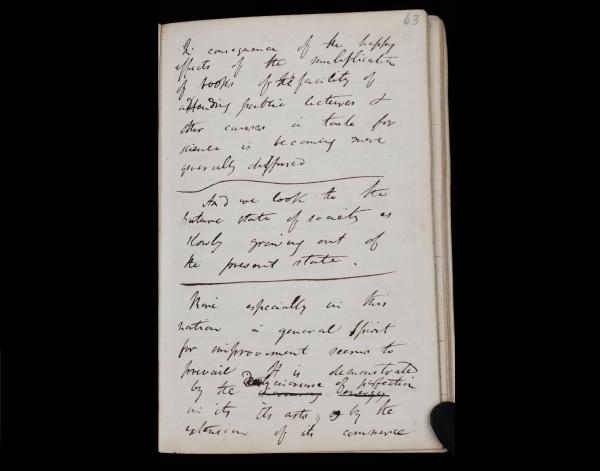 63
In consequence of the happy
effects of the multiplication
of books of the facility of
attending public lectures &
other causes a taste for
science is becoming more
generally diffused
And we look to the
future state of society as
slowly growing out of
the present state.
Here especially in this
nation a general spirit
for improvement seems to
prevail It is demonstrated
by the increase of perfection
in its its arts, by the
extension of its commerce